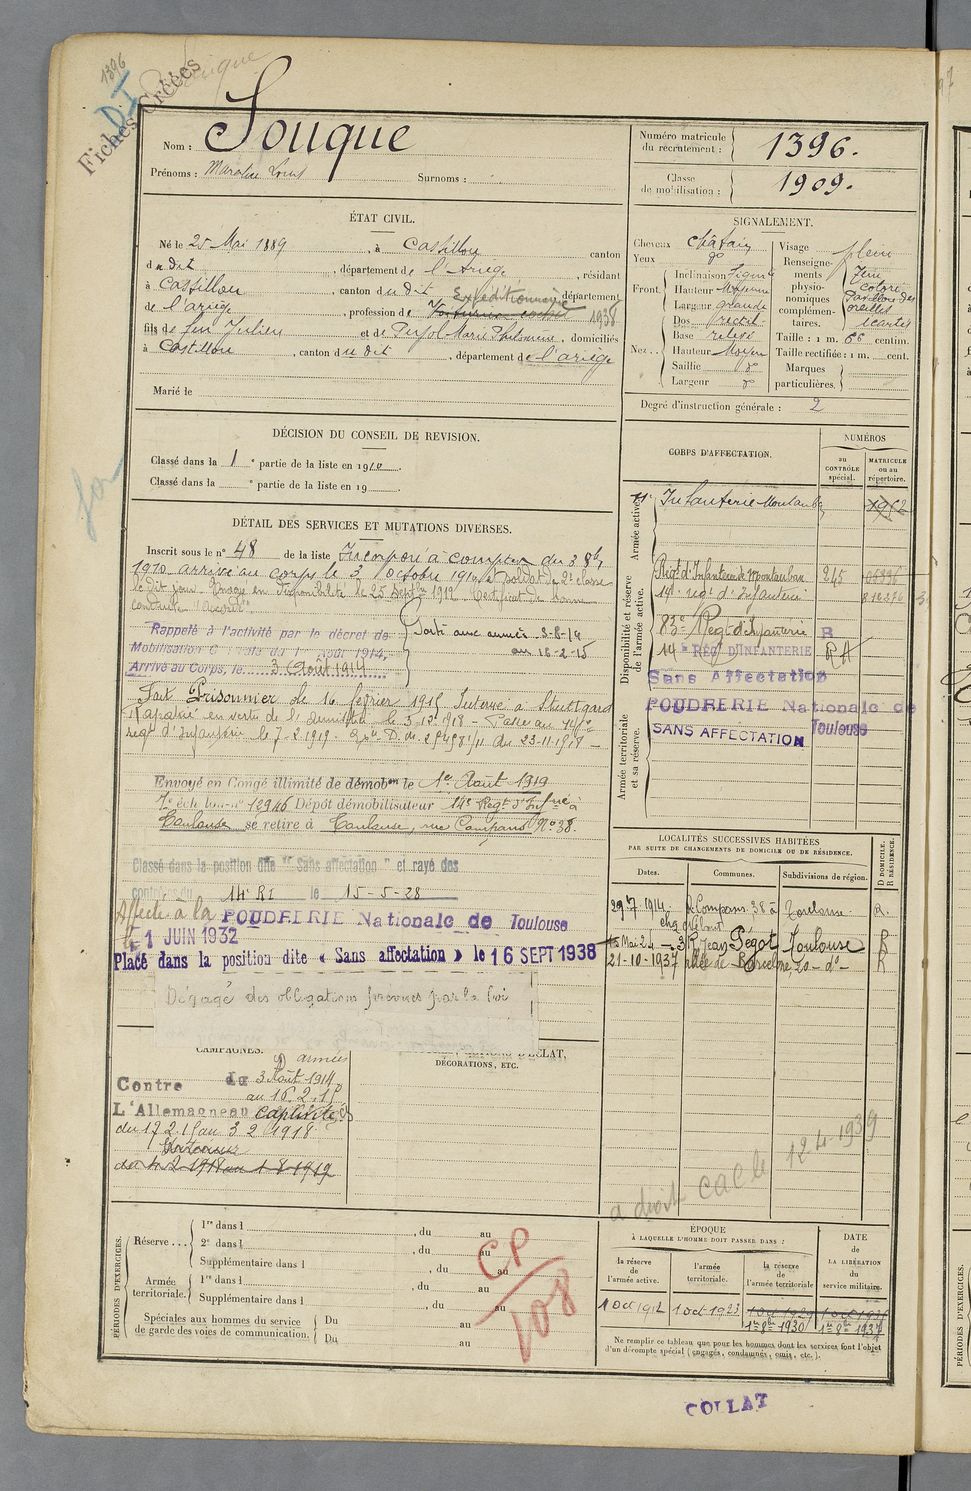 1396
DI
Fiches Créées
Nom : Souque
Prénoms : Maralie Louis Surnoms :
Numéro matricule du recrutement : 1396.
Classe de mobilisation : 1909.
ÉTAT CIVIL.
Né le 25 Mai 1889, à Castillon canton
dudit, département de l'Ariège, résidant
à Castillon, canton dudit département
Expéditionnaire
de l'ariège, profession de 1938
fils de feu Julien et de Pujol Marie, domiciliés
à Castillon, canton dudit, département de l'ariège
Marié le
SIGNALEMENT.
Cheveux châtain
Yeux do
Front. Inclinaison
Hauteur Moyenne
Largeur grande
Nez.. Dos rectil.
Base relevé
Hauteur Moyen
Saillie do
Largeur do
Visage plein
Renseignements physionomiques complémentaires.
coloré
Pavillon des
oreilles
écartés
Taille : 1 m. 66 centim.
Taille rectifiée : 1 m. cent.
Marques particulières.
Degré d'instruction générale : 2
DÉCISION DU CONSEIL DE REVISION.
Classé dans la 1e partie de la liste en 1910.
Classé dans la e partie de la liste en 19
CORPS D'AFFECTATION.
NUMÉROS
au CONTRÔLE spécial.
MATRICULE ou au répertoire.
Armée active.
11e Infanterie Montauban
Disponibilité et réserve de l'armée active.
Régt d'Infanterie de Montauban 245
14e régt d'Infanterie
83e Régt d'Infanterie R
14e RÉGt D'INFANTERIE RA
Sans Affectation
POUDRERIE Nationale de Toulouse
SANS AFFECTATION
Armée territoriale et sa réserve.
DÉTAIL DES SERVICES ET MUTATIONS DIVERSES.
Inscrit sous le n° 48 de la liste Incorporé à compter du 3 8bre
1910 arrivé au corps le 3 octobre 1910, soldat de 2e classe
le dit jour. Envoyé en disponibilité le 25 Septbre 1912 Certificat de bonne
conduite "Accordé"
Rappelé à l'activité par le décret de
Mobilisation Générale du 1er Août 1914.
Arrivé au Corps, le 3 Août 1914
Porté aux armées 3-8-14
au 16-2-15
Fait Prisonnier le 16 février 1915 Interné à Stuttgard
Rapatrié en vertu de l'armistice le 3.12.1918 - Passé au 14e
régt d'Infanterie le 7-2-1919.
Envoyé en Congé illimité de démobon le 1er Août 1919
7e échelon n° 12946 Dépôt démobilisateur 14e Régt d'Infrie à
Toulouse se retire à Toulouse, rue Compans N° 38.
Classé dans la position dite "Sans affectation" et rayé des
contrôles du 14e RI le 15-5-28
Affecté à la POUDRERIE Nationale de Toulouse
le 1 JUIN 1932
Placé dans la position dite « Sans affectation » le 16 SEPT 1938
Dégagé des obligations prévues par la loi
LOCALITÉS SUCCESSIVES HABITÉES
PAR SUITE DE CHANGEMENTS DE DOMICILE OU DE RÉSIDENCE.
Dates. Communes. Subdivisions de région. D DOMICILE. R RÉSIDENCE.
29 7 1914. R Compans 38 à Toulouse. R.
15 Mai 24 - 3 R. Jean Pégot - Toulouse R
21-10-1937 - do - R
CAMPAGNES.
DÉCORATIONS, ETC.
armées
Contre du 3 Août 1914
au 16.2.15
L'Allemagne captivité
du 17 2.15 au 3 2 1918
Intérieur
du 4 2 1918 au 1 8 1919
a droit CAC le 12-4-1939
PÉRIODES D'EXERCICES.
Réserve... 1re dans l , du au
2e dans l , du au
Supplémentaire dans l , du au
Armée territoriale. 1re dans l , du au
Supplémentaire dans l , du au
Spéciales aux hommes du service de garde des voies de communication. Du au
Du au
CP
108
ÉPOQUE
À LAQUELLE L'HOMME DOIT PASSER DANS :
DATE de LA LIBÉRATION du service militaire.
la réserve de l'armée active.
l'armée territoriale.
la réserve de l'armée territoriale
1 Oct 1912 1 oct 1923 1 Oct 1929
1er 8bre 1930 1er 8bre 1937
Ne remplir ce tableau que pour les hommes dont les services font l'objet
d'un décompte spécial (engagés, condamnés, omis, etc.).
COLLAT
PÉRIODES D'EXERCICES.